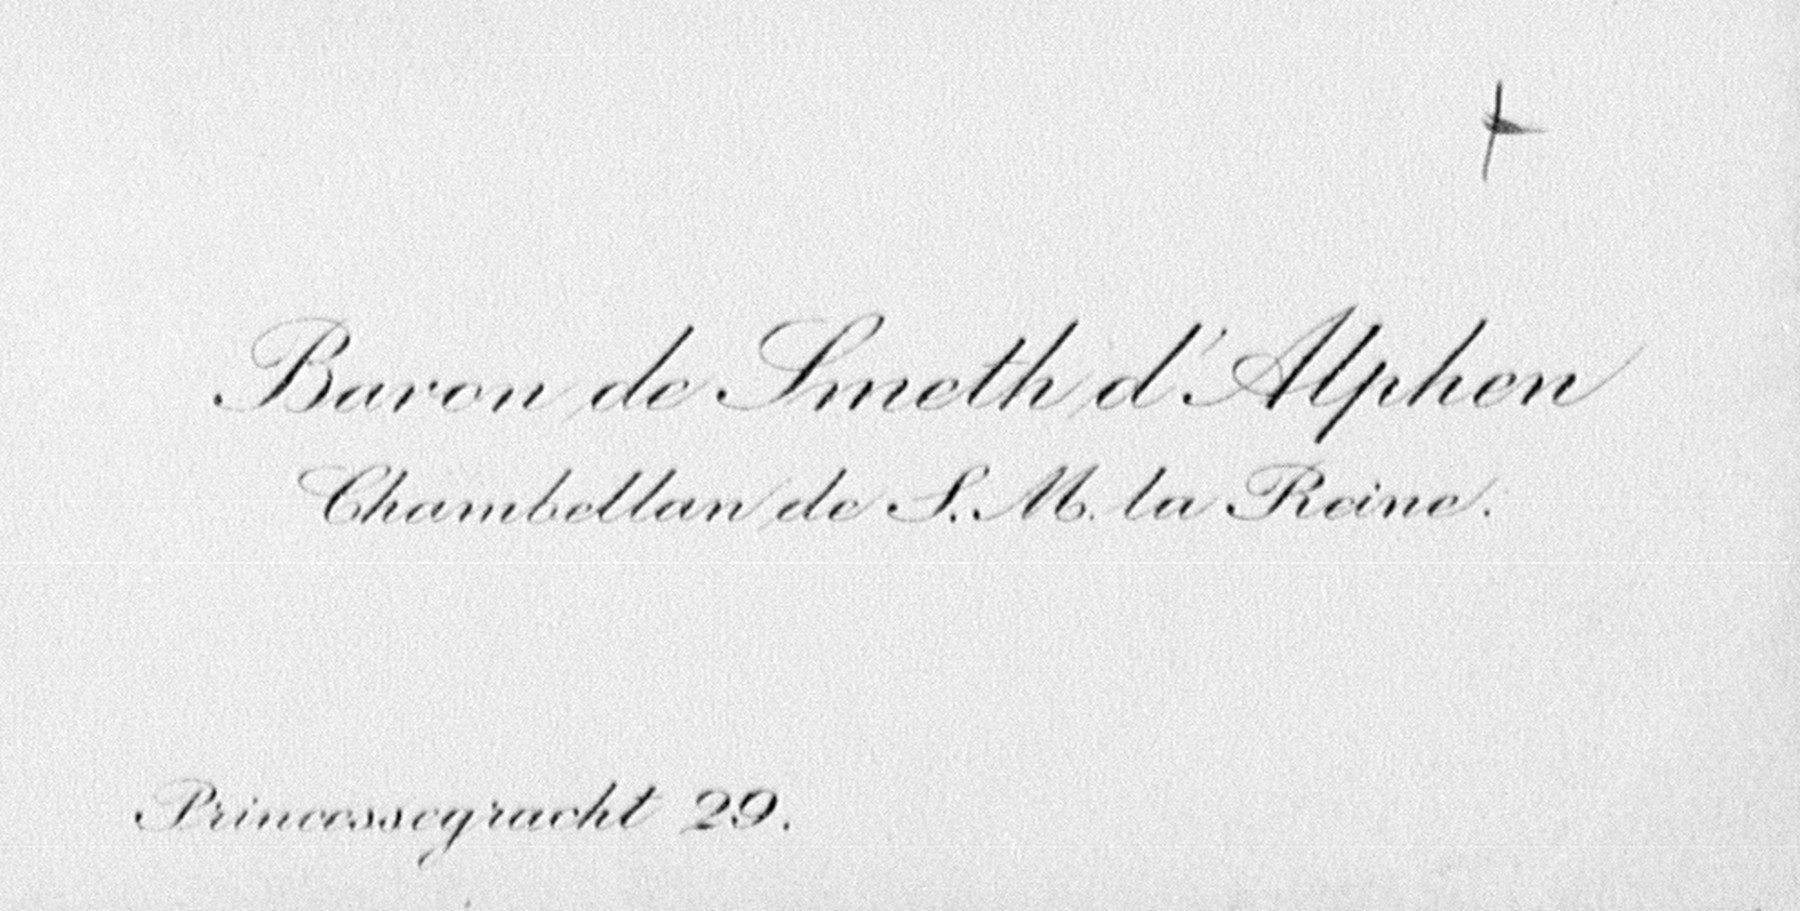 Baron de Smeth d'Alphen
Chambellan de S. M. la Reine.
Princessegracht 29.